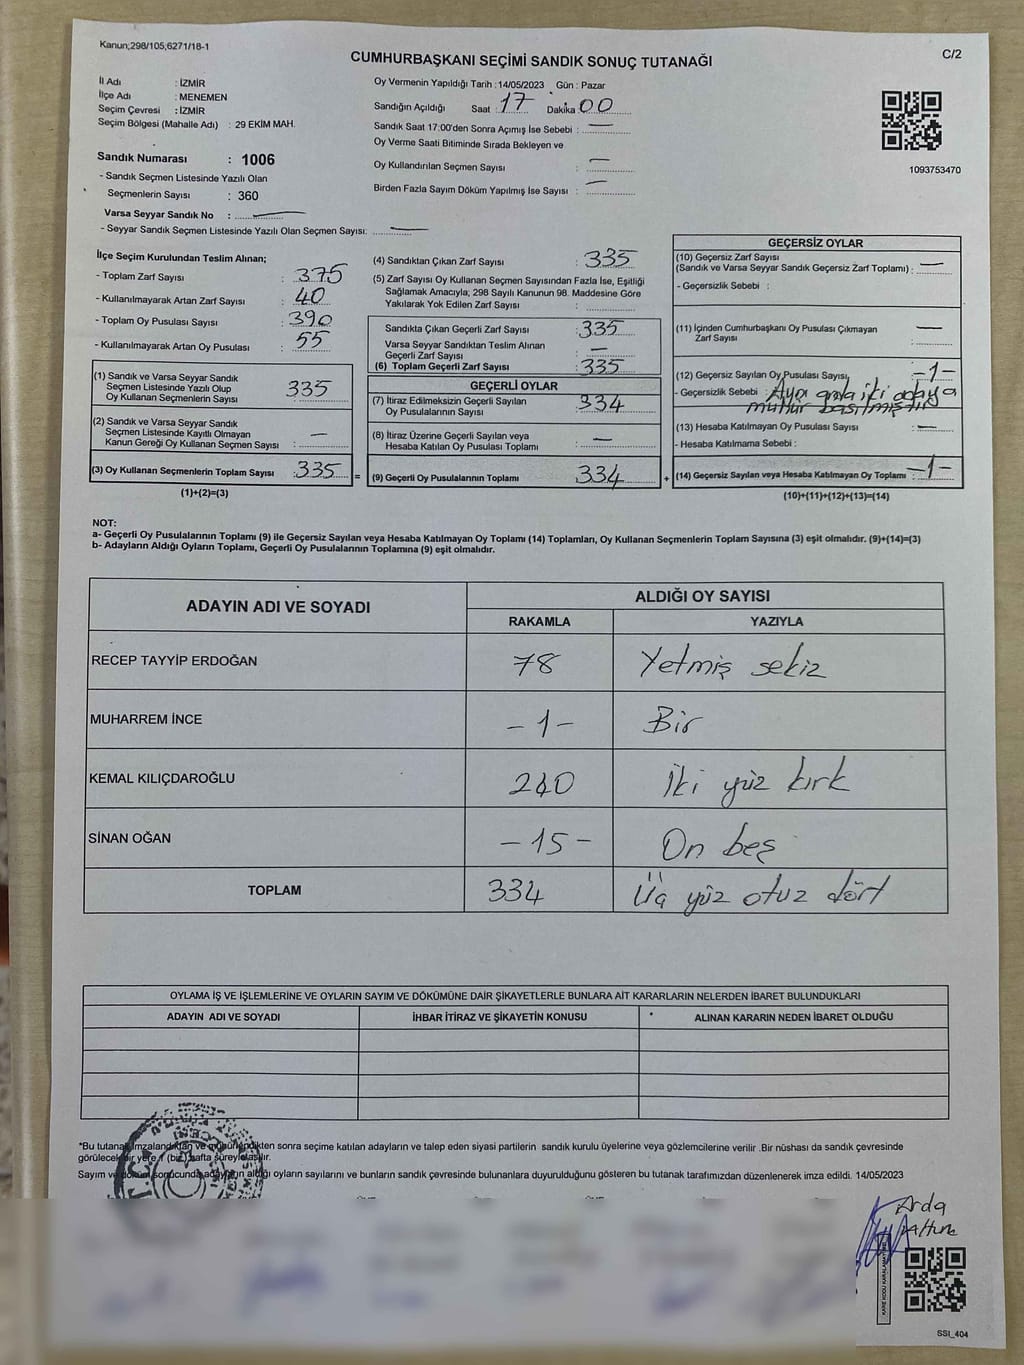 Kanun;298/105,6271/18-1
C/2
CUMHURBAŞKANI SEÇİMİ SANDIK SONUÇ TUTANAĞI
İl Adı : İZMİR
İlçe Adı : MENEMEN
Seçim Çevresi : İZMİR
Seçim Bölgesi (Mahalle Adı) : 29 EKİM MAH.
Sandık Numarası : 1006
- Sandık Seçmen Listesinde Yazılı Olan
Seçmenlerin Sayısı : 360
Varsa Seyyar Sandık No : —
- Seyyar Sandık Seçmen Listesinde Yazılı Olan Seçmen Sayısı: —
Oy Vermenin Yapıldığı Tarih : 14/05/2023 Gün : Pazar
Sandığın Açıldığı Saat : 17 Dakika 00
Sandık Saat 17:00'den Sonra Açımış İse Sebebi : —
Oy Verme Saati Bitiminde Sırada Bekleyen ve
Oy Kullandırılan Seçmen Sayısı : —
Birden Fazla Sayım Döküm Yapılmış İse Sayısı : —
1093753470
İlçe Seçim Kurulundan Teslim Alınan;
- Toplam Zarf Sayısı : 375
- Kullanılmayarak Artan Zarf Sayısı : 40
- Toplam Oy Pusulası Sayısı : 390
- Kullanılmayarak Artan Oy Pusulası : 55
(1) Sandık ve Varsa Seyyar Sandık
Seçmen Listesinde Yazılı Olup
Oy Kullanan Seçmenlerin Sayısı 335
(2) Sandık ve Varsa Seyyar Sandık
Seçmen Listesinde Kayıtlı Olmayan
Kanun Gereği Oy Kullanan Seçmen Sayısı : —
(3) Oy Kullanan Seçmenlerin Toplam Sayısı : 335
(1)+(2)=(3)
(4) Sandıktan Çıkan Zarf Sayısı : 335
(5) Zarf Sayısı Oy Kullanan Seçmen Sayısından Fazla İse, Eşitliği
Sağlamak Amacıyla, 298 Sayılı Kanunun 98. Maddesine Göre
Yakılarak Yok Edilen Zarf Sayısı :
Sandıkta Çıkan Geçerli Zarf Sayısı : 335
Varsa Seyyar Sandıktan Teslim Alınan
Geçerli Zarf Sayısı : —
(6) Toplam Geçerli Zarf Sayısı : 335
GEÇERLİ OYLAR
(7) İtiraz Edilmeksizin Geçerli Sayılan
Oy Pusulalarının Sayısı : 334
(8) İtiraz Üzerine Geçerli Sayılan veya
Hesaba Katılan Oy Pusulası Toplamı : —
= (9) Geçerli Oy Pusulalarının Toplamı : 334 +
GEÇERSİZ OYLAR
(10) Geçersiz Zarf Sayısı
(Sandık ve Varsa Seyyar Sandık Geçersiz Zarf Toplamı) : —
- Geçersizlik Sebebi :
(11) İçinden Cumhurbaşkanı Oy Pusulası Çıkmayan
Zarf Sayısı : —
(12) Geçersiz Sayılan Oy Pusulası Sayısı : -1-
- Geçersizlik Sebebi : Aynı anda iki adaya
mühür basılmıştır
(13) Hesaba Katılmayan Oy Pusulası Sayısı : —
- Hesaba Katılmama Sebebi :
(14) Geçersiz Sayılan veya Hesaba Katılmayan Oy Toplamı : -1-
(10)+(11)+(12)+(13)=(14)
NOT:
a- Geçerli Oy Pusulalarının Toplamı (9) ile Geçersiz Sayılan veya Hesaba Katılmayan Oy Toplamı (14) Toplamları, Oy Kullanan Seçmenlerin Toplam Sayısına (3) eşit olmalıdır. (9)+(14)=(3)
b- Adayların Aldığı Oyların Toplamı, Geçerli Oy Pusulalarının Toplamına (9) eşit olmalıdır.
ADAYIN ADI VE SOYADI ALDIĞI OY SAYISI
RAKAMLA YAZIYLA
RECEP TAYYİP ERDOĞAN 78 Yetmiş sekiz
MUHARREM İNCE -1- Bir
KEMAL KILIÇDAROĞLU 240 İki yüz kırk
SİNAN OĞAN -15- On beş
TOPLAM 334 Üç yüz otuz dört
OYLAMA İŞ VE İŞLEMLERİNE VE OYLARIN SAYIM VE DÖKÜMÜNE DAİR ŞİKAYETLERLE BUNLARA AİT KARARLARIN NELERDEN İBARET BULUNDUKLARI
ADAYIN ADI VE SOYADI İHBAR İTİRAZ VE ŞİKAYETİN KONUSU ALINAN KARARIN NEDEN İBARET OLDUĞU
*Bu tutanak imzalandıktan ve mühürlendikten sonra seçime katılan adayların ve talep eden siyasi partilerin sandık kurulu üyelerine veya gözlemcilerine verilir .Bir nüshası da sandık çevresinde
görülecek bir yere 1 (bir) hafta süreyle asılır.
Sayım ve döküm sonucunda adayların aldığı oyların sayılarını ve bunların sandık çevresinde bulunanlara duyurulduğunu gösteren bu tutanak tarafımızdan düzenlenerek imza edildi. 14/05/2023
T.C.
Arda
SSI_404